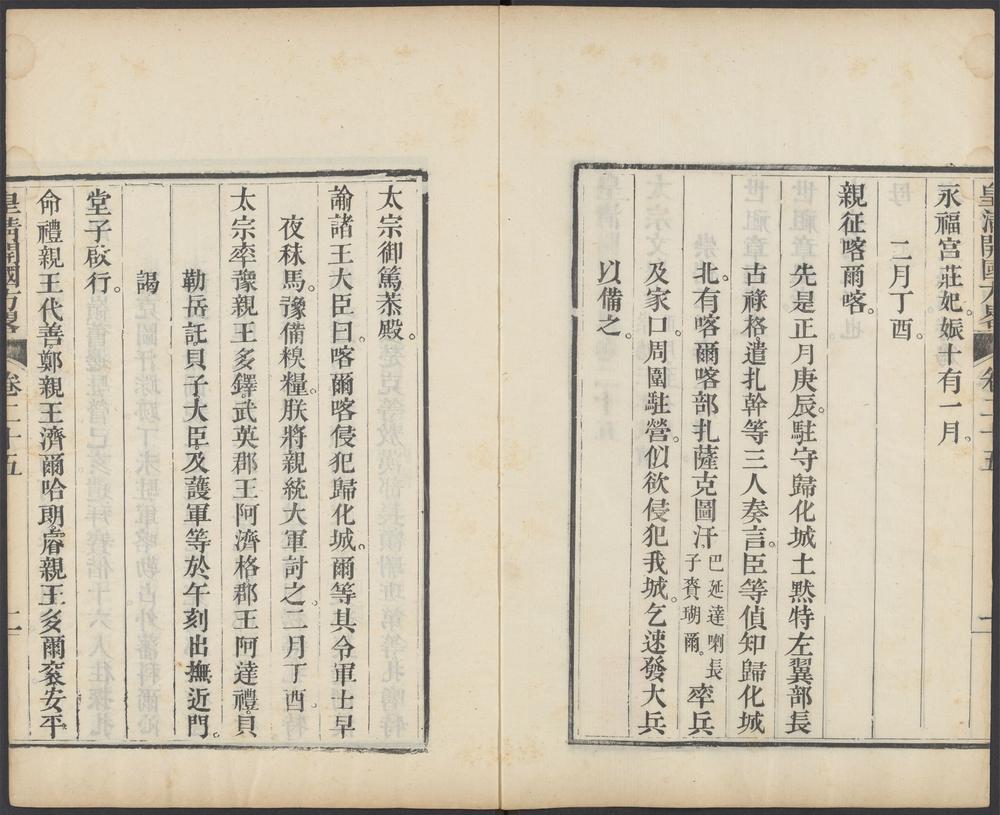 皇清開國方畧 卷二十五 一
永福宮莊妃娠十有一月。
二月丁酉。
親征喀爾喀。
先是正月庚辰。駐守歸化城土默特左翼部長
古祿格遣扎幹等三人奏言。臣等偵知歸化城
北。有喀爾喀部扎薩克圖汗巴延達喇長子賚瑚爾。率兵
及家口。周圍駐營。似欲侵犯我城。乞速發大兵
以備之。
太宗御篤恭殿。
諭諸王大臣曰。喀爾喀侵犯歸化城。爾等其令軍士早
夜秣馬。豫備糗糧。朕將親統大軍討之。二月丁酉。
太宗率豫親王多鐸。武英郡王阿濟格。郡王阿達禮。貝
勒岳託。貝子大臣。及護軍等於午刻出撫近門。
謁
堂子啟行。
命禮親王代善。鄭親王濟爾哈朗。睿親王多爾袞。安平
皇清開國方畧 卷二十五 二